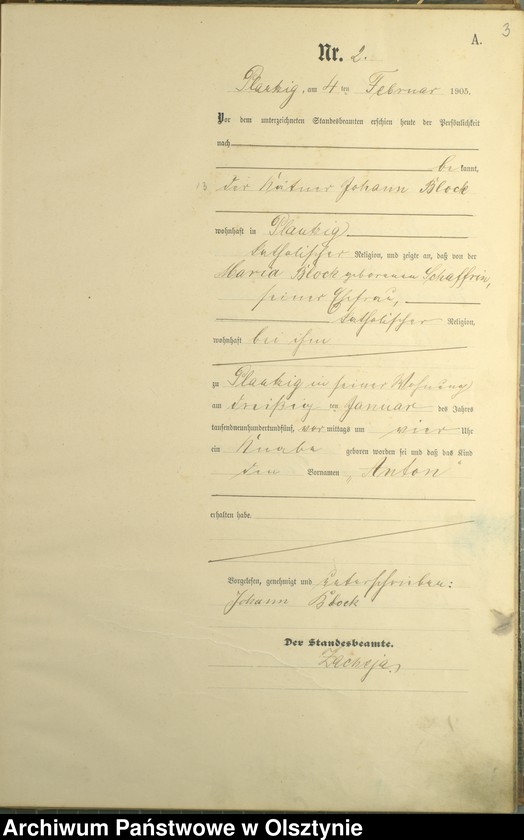 3
A.
Nr. 2.
Plautzig, am 4 ten Februar 1905.
Vor dem unterzeichneten Standesbeamten erschien heute der Persönlichkeit
nach
be kannt,
der Kätner Johann Block
wohnhaft in Plautzig
katholischer Religion, und zeigte an, daß von der
Maria Block geborenen Schaffrin,
seiner Ehefrau,
katholischer Religion,
wohnhaft bei ihm
zu Plautzig in seiner Wohnung
am dreißig ten Januar des Jahres
tausendneunhundertundfünf, vor mittags um vier Uhr
ein Knabe geboren worden sei und daß das Kind
den Vornamen „Anton“
erhalten habe.
Vorgelesen, genehmigt und unterschrieben:
Johann Block
Der Standesbeamte.
Archiwum Państwowe w Olsztynie